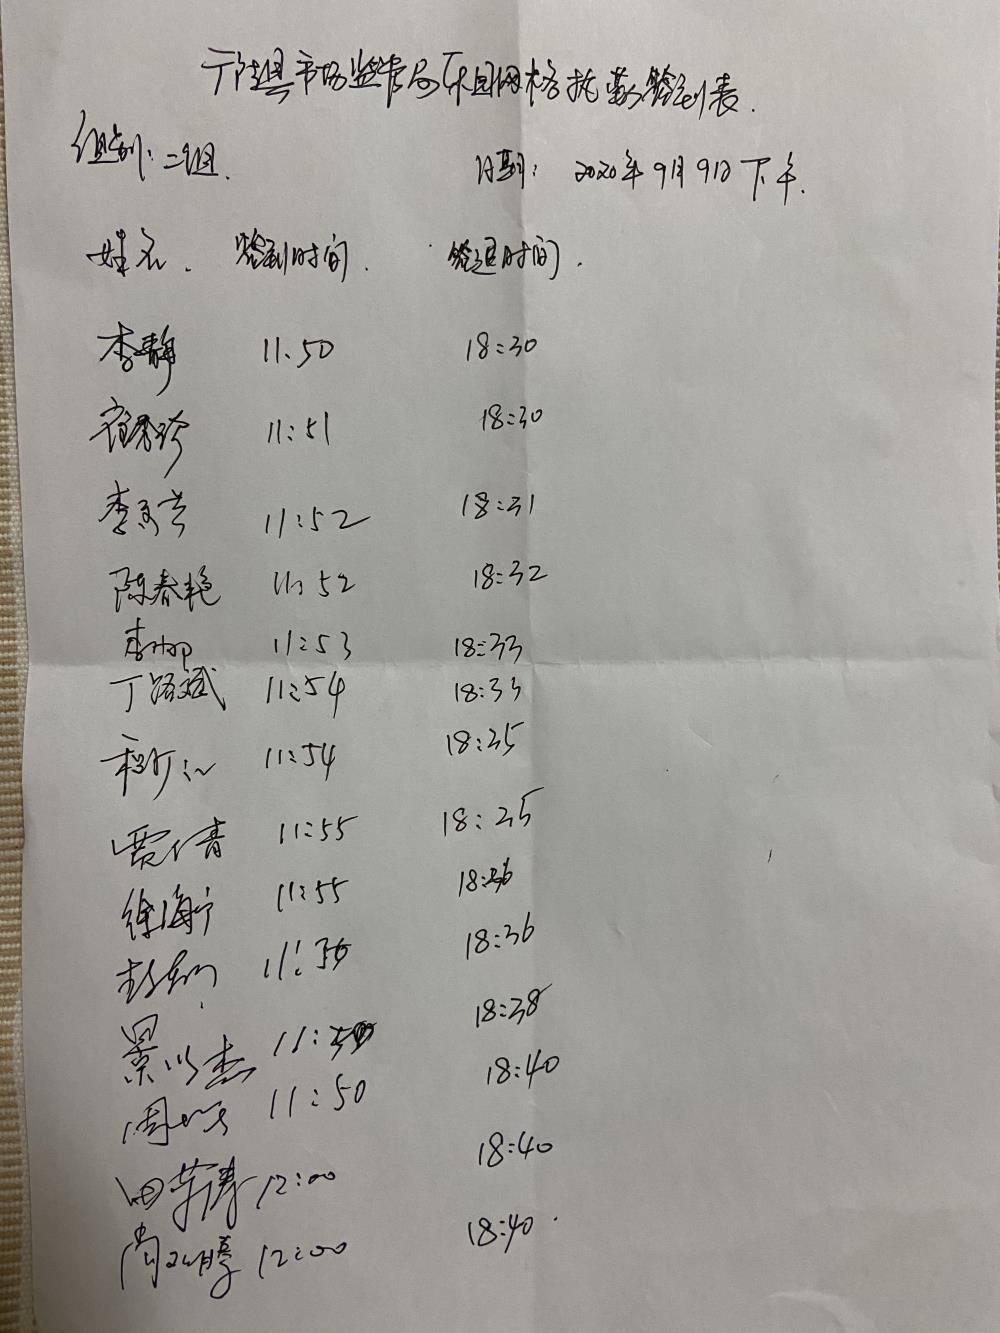 市场监管局 网格执勤签到表.
组别:二组.
日期: 2020年9月9日下午.
姓名. 签到时间. 签退时间.
李静 11:50 18:30
秀珍 11:51 18:30
李 11:52 18:31
陈春艳 11:52 18:32
李娜 11:53 18:33
丁 斌 11:54 18:33
11:54 18:35
贾 青 11:55 18:35
徐海宁 11:55 18:36
11:56 18:36
景 杰 18:38
周 11:50 18:40
田 涛 12:00 18:40
尚 12:00 18:40.